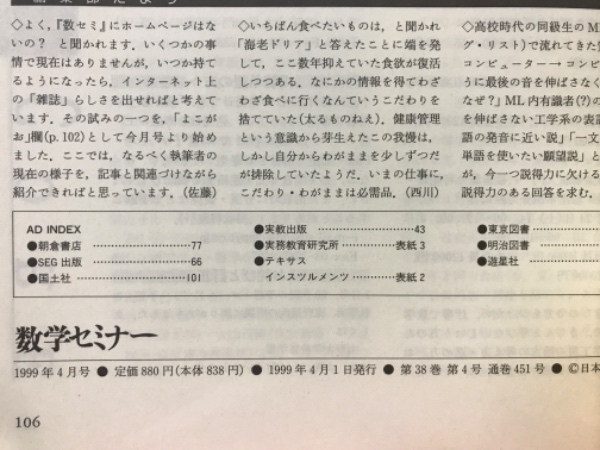 ◇よく,『数セミ』にホームページはな
いの？ と聞かれます. いくつかの事
情で現在はありませんが, いつか持て
るようになったら, インターネット上
の「雑誌」らしさを出せればと考えて
います. その試みの一つを,「よこが
お」欄(p.102)として今月号より始め
ました. ここでは, なるべく執筆者の
現在の様子を, 記事と関連づけながら
紹介できればと思っています. (佐藤)
◇いちばん食べたいものは, と聞かれ
「海老ドリア」と答えたことに端を発
して, ここ数年抑えていた食欲が復活
しつつある. なにかの情報を得てわざ
わざ食べに行くなんていうこだわりを
捨てていた(太るものねえ). 健康管理
という意識から芽生えたこの我慢は,
しかし自分からわがままを少しずつだ
が排除していたようだ. いまの仕事に,
こだわり・わがままは必需品. (西川)
◇高校時代の同級生のM
グ・リスト)で流れてきた
コンピューター→コンピ
うに最後の音を伸ばさなく
なぜ？」ML内有識者(?)の
を伸ばさない工学系の表記
語の発音に近い説」「一文
単語を使いたい願望説」と
が, 今一つ説得力に欠ける
説得力のある回答を求む.
AD INDEX
●朝倉書店 ………………77
●SEG出版 ………………66
●国土社 ………………101
●実教出版 ………………43
●実務教育研究所 …………表紙3
●テキサス
インスツルメンツ …………表紙2
●東京図書 …………
●明治図書 …………
●遊星社 …………
数学セミナー
1999年4月号 ● 定価880円(本体838円) ● 1999年4月1日発行 ● 第38巻 第4号 通巻451号 ● ©日本
106